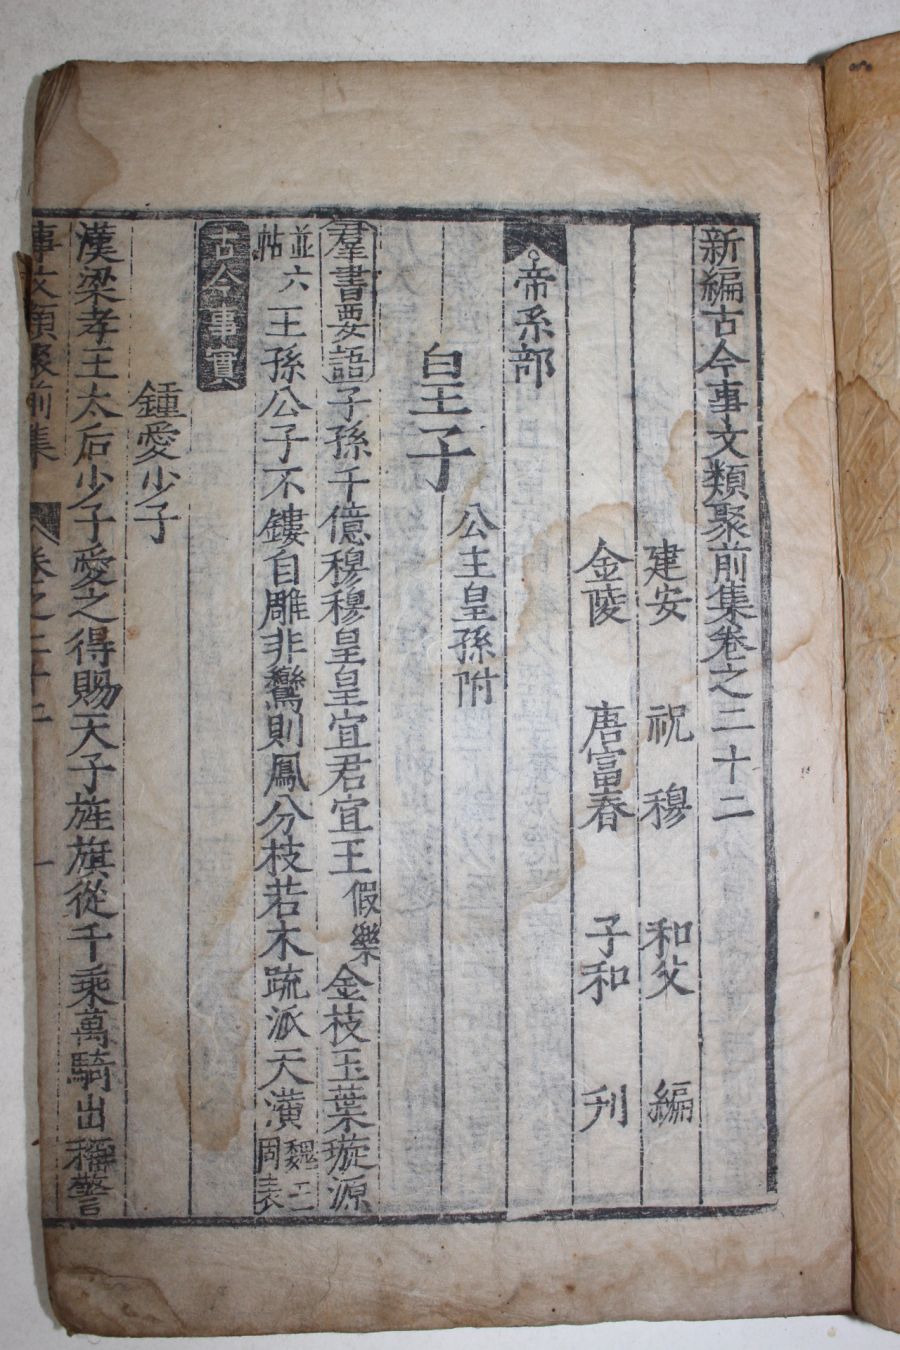 新編古今事文類聚前集卷之二十二
建安 祝穆 和父 編
金陵 唐富春 子和 刋
帝系部
皇子
公主皇孫附
羣書要語子孫千億穆穆皇皇宜君宜王假樂金枝玉葉璇源
並六帖王孫公子不鏤自雕非鸞則鳳分枝若木疏派天潢
古今事實
鍾愛少子
漢梁孝王太后少子愛之得賜天子旌旗從千乘萬騎出稱警
事文類聚前集 卷之二十二 一